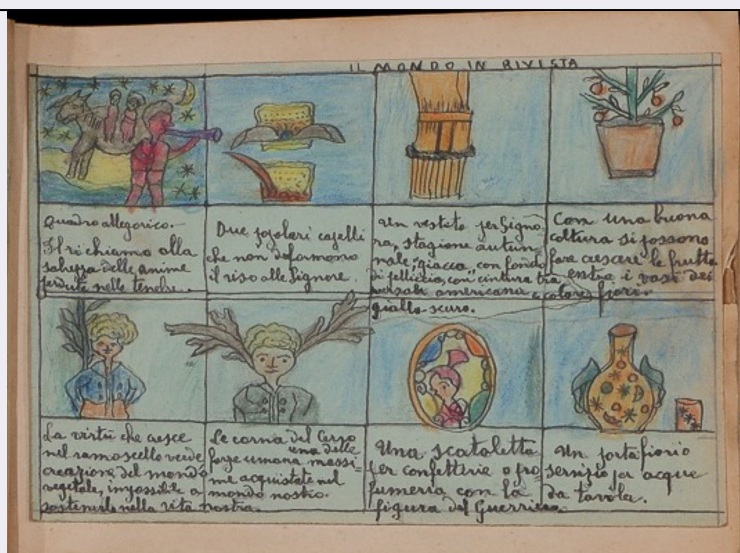 IL MONDO IN RIVISTA
Quadro allegorico.
Il richiamo alla
salvezza delle anime
perdute nelle tenebre.
Due popolari capelli
che non deformano
il riso alle Signore.
Un vestito per Signo,
ra, stagione autun,
nale, giacca, con fondo
di pelliccia, con cintura tra
americana e colore
giallo-scuro.
Con una buona
coltura si possono
fare crescere le frutta
entro i vasi dei
fiori.
La virtù che cresce
nel ramoscello verde
creazione del mondo
vegetale, impossibile a
sostenirle nella vita nostra.
Le corna del Cervo
una delle
forze umana massi=
me acquistate nel
mondo nostro.
Una scatoletta
per confetteria o pro
fumeria, con la
figura del Guerriero.
Un porta fiorio
servizio per acque
da tavola.